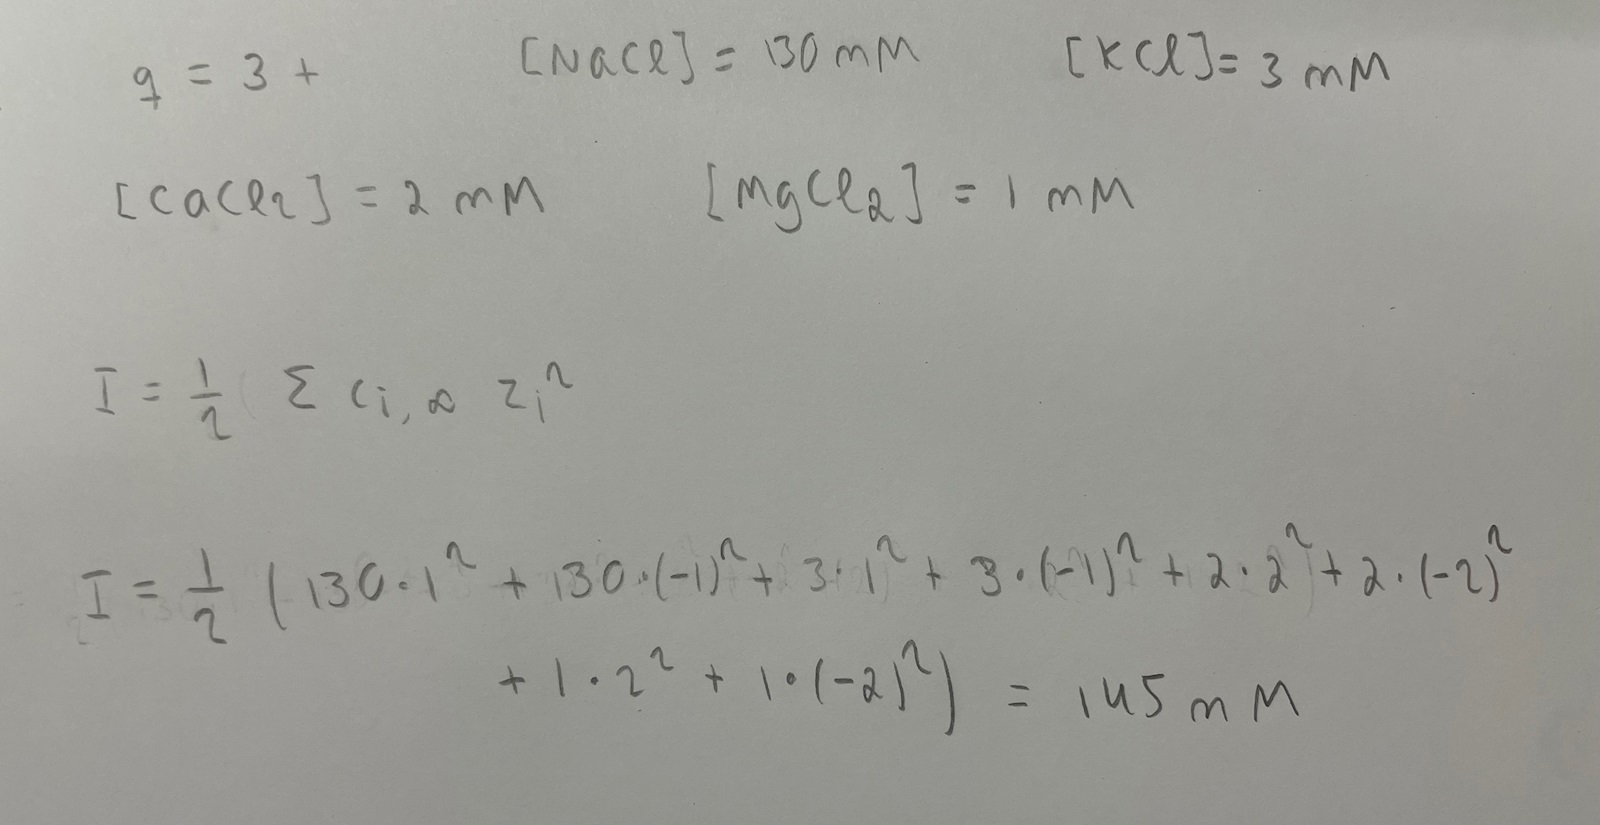 q = 3 + [NaCl] = 130 mM [KCl] = 3 mM
[CaCl₂] = 2 mM [MgCl₂] = 1 mM
I = 1/2 Σ cᵢ,∞ zᵢ²
I = 1/2 (130·1² + 130·(-1)² + 3·1² + 3·(-1)² + 2·2² + 2·(-2)²
+ 1·2² + 1·(-2)²) = 145 mM